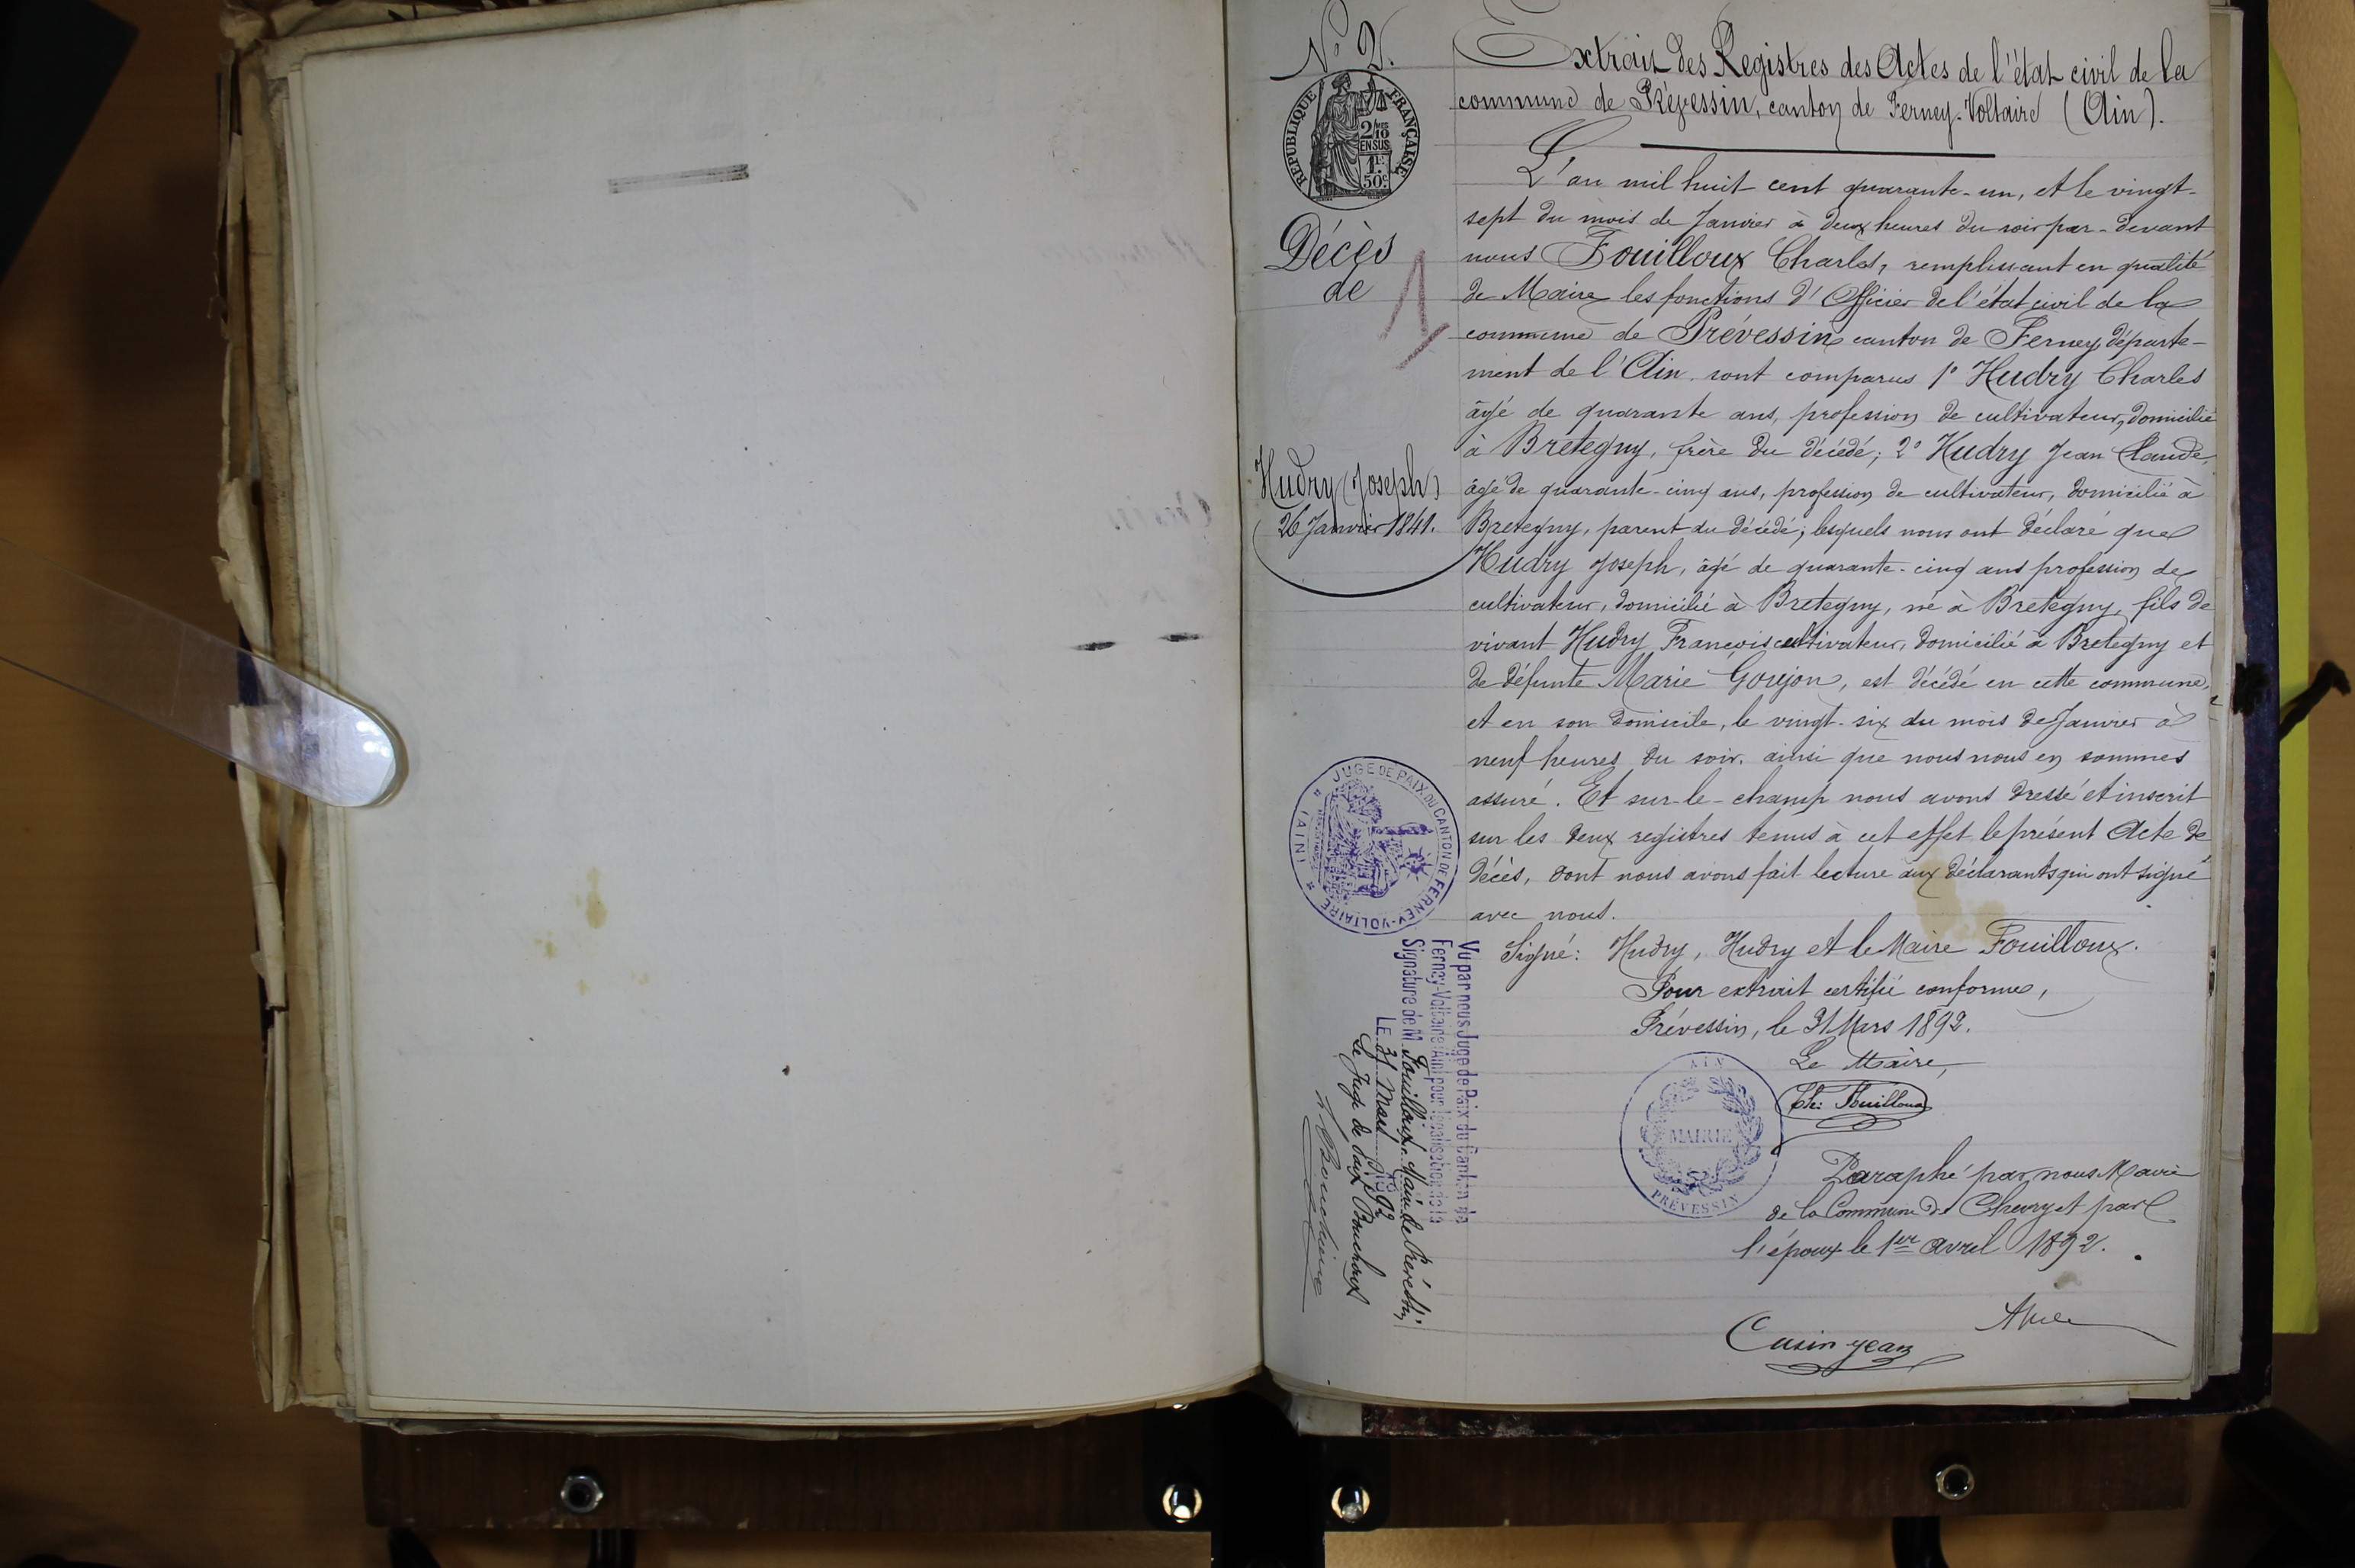 N° 2.
RÉPUBLIQUE FRANÇAISE
2/10
EN SUS
1F.
50c.
Décès
de
1
Hudry (Joseph)
26 Janvier 1841.
Extrait des Registres des Actes de l'état civil de la
commune de Prévessin, canton de Ferney-Voltaire (Ain).
L'an mil huit cent quarante-un, et le vingt-
sept du mois de Janvier à deux heures du soir par-devant
nous Fouilloux Charles, remplissant en qualité
de Maire les fonctions d'Officier de l'état civil de la
commune de Prévessin canton de Ferney, départe-
ment de l'Ain. sont comparus 1° Hudry Charles
âgé de quarante ans, profession de cultivateur, domicilié
à Bretegny, frère du décédé; 2° Hudry Jean Claude,
âgé de quarante-cinq ans, profession de cultivateur, domicilié à
Bretegny, parent du décédé; lesquels nous ont déclaré que
Hudry Joseph, âgé de quarante-cinq ans profession de
cultivateur, domicilié à Bretegny, né à Bretegny, fils de
vivant Hudry François cultivateur, domicilié à Bretegny et
de défunte Marie Goujon, est décédé en cette commune,
et en son domicile, le vingt-six du mois de Janvier à
neuf heures du soir. ainsi que nous nous en sommes
assuré. Et sur-le-champ nous avons dressé et inscrit
sur les deux registres tenus à cet effet le présent Acte de
décès, dont nous avons fait lecture aux déclarants qui ont signé
avec nous.
Signé: Hudry, Hudry et le Maire Fouilloux.
Pour extrait certifié conforme,
Prévessin, le 31 Mars 1892.
Le Maire,
Ch: Fouilloux
AIN
MAIRIE
PRÉVESSIN
Paraphé par nous Maire
de la Commune de Chevry et par
l'époux le 1er avril 1892.
Cusin jean
JUGE DE PAIX DU CANTON DE FERNEY-VOLTAIRE
(AIN)
Vu par nous Juge de Paix du Canton de
Ferney-Voltaire (Ain) pour légalisation de la
Signature de M. Fouilloux Maire de Prévessin
LE 31 Mars 1892
Le Juge de Paix Bouchoux